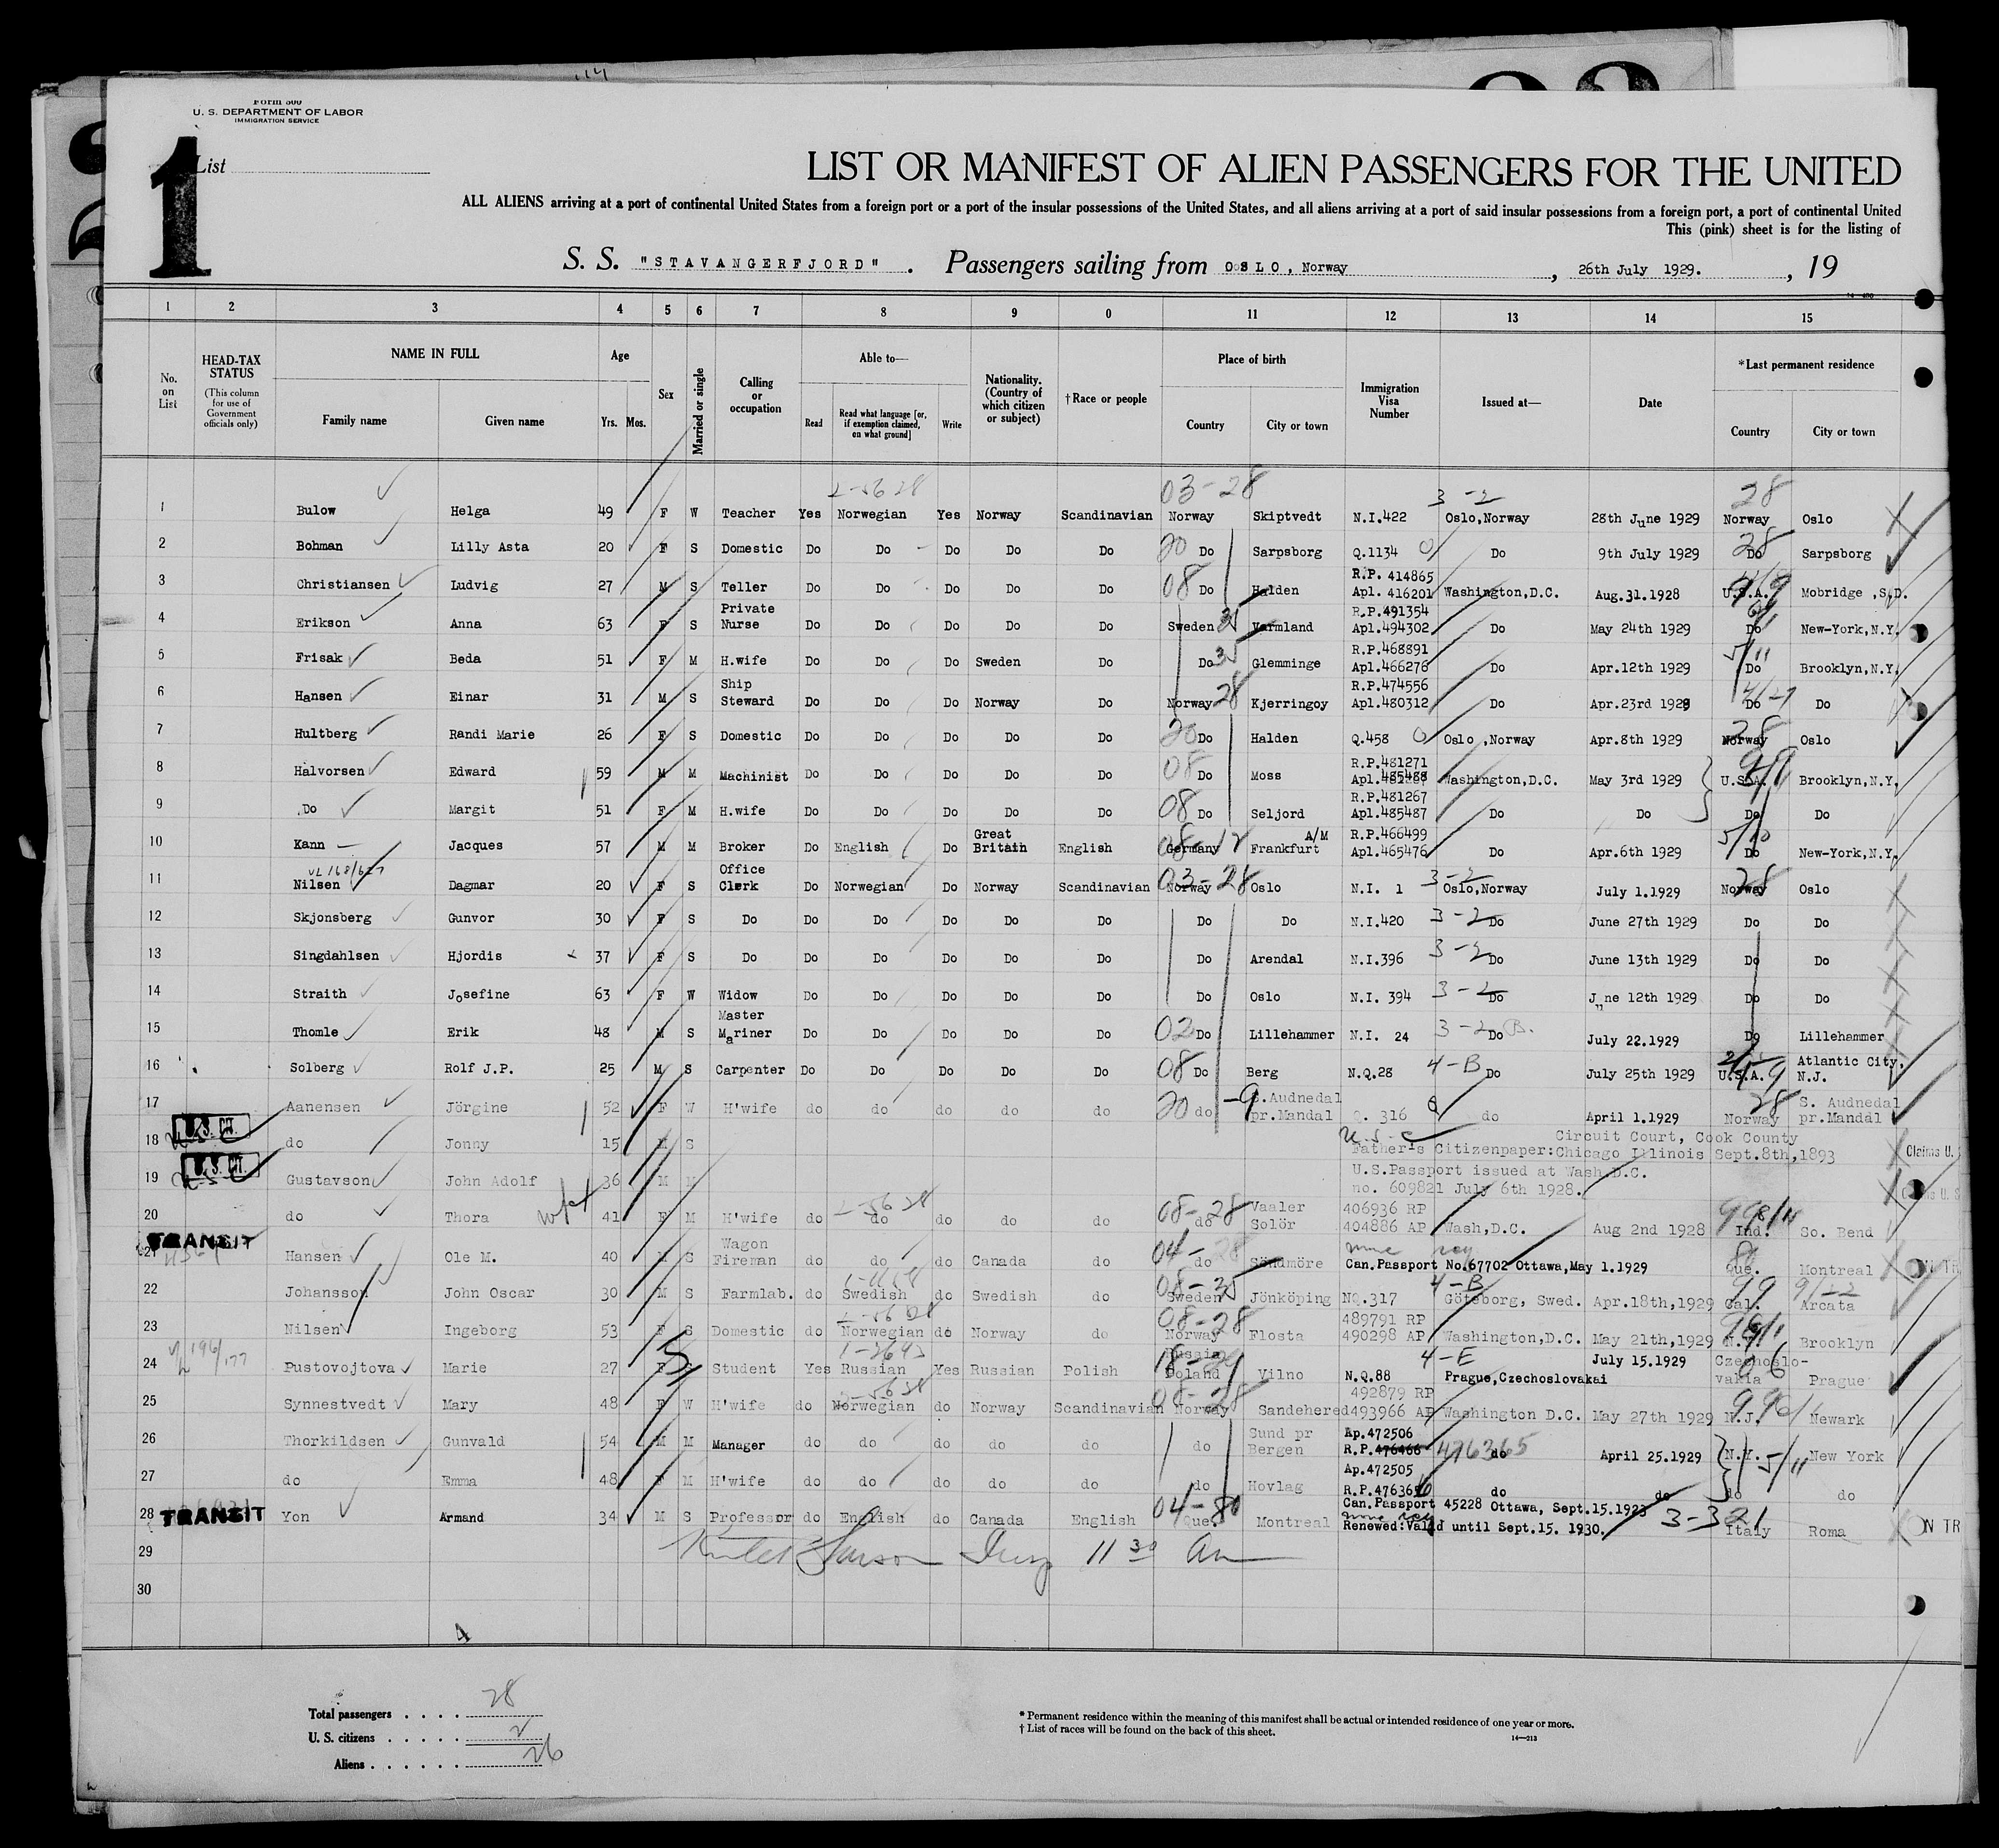 Form 500
U. S. DEPARTMENT OF LABOR
IMMIGRATION SERVICE
1
List
LIST OR MANIFEST OF ALIEN PASSENGERS FOR THE UNITED
ALL ALIENS arriving at a port of continental United States from a foreign port or a port of the insular possessions of the United States, and all aliens arriving at a port of said insular possessions from a foreign port, a port of continental United
This (pink) sheet is for the listing of
S. S. "STAVANGERFJORD" . Passengers sailing from OSLO, Norway , 26th July 1929. , 19
1 2 3 4 5 6 7 8 9 0 11 12 13 14 15
No. on List
HEAD-TAX STATUS
(This column for use of Government officials only)
NAME IN FULL
Family name Given name
Age
Yrs. Mos.
Sex
Married or single
Calling or occupation
Able to—
Read
Read what language [or, if exemption claimed, on what ground]
Write
Nationality. (Country of which citizen or subject)
†Race or people
Place of birth
Country City or town
Immigration Visa Number
Issued at—
Date
*Last permanent residence
Country City or town
2-5628 03-28 3-2 28
1 Bulow Helga 49 F W Teacher Yes Norwegian Yes Norway Scandinavian Norway Skiptvedt N.I.422 Oslo,Norway 28th June 1929 Norway Oslo
2 Bohman Lilly Asta 20 F S Domestic Do Do Do Do Do 20 Do Sarpsborg Q.1134 Do 9th July 1929 28 Do Sarpsborg
3 Christiansen Ludvig 27 M S Teller Do Do Do Do Do 08 Do Halden R.P. 414865 Apl. 416201 Washington,D.C. Aug.31.1928 U.S.A. Mobridge ,S.D.
4 Erikson Anna 63 F S Private Nurse Do Do Do Do Do Sweden Varmland R.P.491354 Apl.494302 Do May 24th 1929 Do New-York,N.Y.
5 Frisak Beda 51 F M H.wife Do Do Do Sweden Do Do Glemminge R.P.468891 Apl.466276 Do Apr.12th 1929 Do Brooklyn,N.Y.
6 Hansen Einar 31 M S Ship Steward Do Do Do Norway Do Norway 28 Kjerringoy R.P.474556 Apl.480312 Do Apr.23rd 1929 Do Do
7 Hultberg Randi Marie 26 F S Domestic Do Do Do Do Do 20 Do Halden Q.458 Oslo ,Norway Apr.8th 1929 28 Norway Oslo
8 Halvorsen Edward 59 M M Machinist Do Do Do Do Do 08 Do Moss R.P.481271 Apl. Washington,D.C. May 3rd 1929 U.S.A. Brooklyn,N.Y.
9 Do Margit 51 F M H.wife Do Do Do Do Do 08 Do Seljord R.P.481267 Apl.485487 Do Do Do Do
10 Kann Jacques 57 M M Broker Do English Do Great Britain English Germany Frankfurt A/M R.P.466499 Apl.465476 Do Apr.6th 1929 Do New-York,N.Y.
11 Nilsen Dagmar 20 F S Office Clerk Do Norwegian Do Norway Scandinavian 03-28 Norway Oslo N.I. 1 3-2 Oslo,Norway July 1.1929 28 Norway Oslo
12 Skjonsberg Gunvor 30 F S Do Do Do Do Do Do Do Do N.I.420 3-2 Do June 27th 1929 Do Do
13 Singdahlsen Hjordis 37 F S Do Do Do Do Do Do Do Arendal N.I.396 3-2 Do June 13th 1929 Do Do
14 Straith Josefine 63 F W Widow Do Do Do Do Do Do Oslo N.I. 394 3-2 Do June 12th 1929 Do Do
15 Thomle Erik 48 M S Master Mariner Do Do Do Do Do 02 Do Lillehammer N.I. 24 3-2 Do July 22.1929 Do Lillehammer
16 Solberg Rolf J.P. 25 M S Carpenter Do Do Do Do Do 08 Do Berg N.Q.28 4-B Do July 25th 1929 U.S.A. Atlantic City, N.J.
17 Aanensen Jörgine 52 F W H'wife do do do do do 20 do S.Audnedal pr.Mandal Q. 316 do April 1.1929 28 Norway S. Audnedal pr.Mandal
18 U.S. CIT. do Jonny 15 M S U.S.C Father's Citizenpaper: Circuit Court, Cook County Chicago Illinois Sept.8th,1893 Claims U.
19 U.S. CIT. Gustavson John Adolf 36 M M U.S.Passport issued at Wash,D.C. no. 609821 July 6th 1928.
20 do Thora wife 41 F M H'wife do do do do do 08-28 do Vaaler Solör 406936 RP 404886 AP Wash,D.C. Aug 2nd 1928 Ind. So. Bend
21 TRANSIT Hansen Ole M. 40 M S Wagon Fireman do do do Canada do 04-28 do Söndmöre Can.Passport No.67702 Ottawa,May 1.1929 Que. Montreal
22 Johansson John Oscar 30 M S Farmlab. do Swedish do Swedish do Sweden Jönköping NQ.317 4-B Göteborg, Swed. Apr.18th,1929 Cal. Arcata
23 Nilsen Ingeborg 53 F S Domestic do Norwegian do Norway do 08-28 Norway Flosta 489791 RP 490298 AP Washington,D.C. May 21th,1929 N.Y. Brooklyn
24 Pustovojtova Marie 27 F S Student Yes Russian Yes Russian Polish Russia Poland Vilno N.Q.88 4-E Prague,Czechoslovakai July 15.1929 Czechoslovakia Prague
25 Synnestvedt Mary 48 F W H'wife do Norwegian do Norway Scandinavian 08-28 Norway Sandehered 492879 RP 493966 AP Washington D.C. May 27th 1929 N.J. Newark
26 Thorkildsen Gunvald 54 M M Manager do do do do do do Sund pr Bergen Ap.472506 R.P.476466 476365 do April 25.1929 N.Y. 5/11 New York
27 do Emma 48 F M H'wife do do do do do do Hovlag Ap.472505 R.P. do do do do
28 TRANSIT Yon Armand 34 M S Professor do English do Canada English Que. Montreal Can.Passport 45228 Ottawa, Sept.15.1923 Renewed:Valid until Sept.15. 1930. Italy Roma N TR
29 11 30 am
30
Total passengers . . . . 28
U. S. citizens . . . . . 2
Aliens . . . . . . 26
* Permanent residence within the meaning of this manifest shall be actual or intended residence of one year or more.
† List of races will be found on the back of this sheet.
14—213